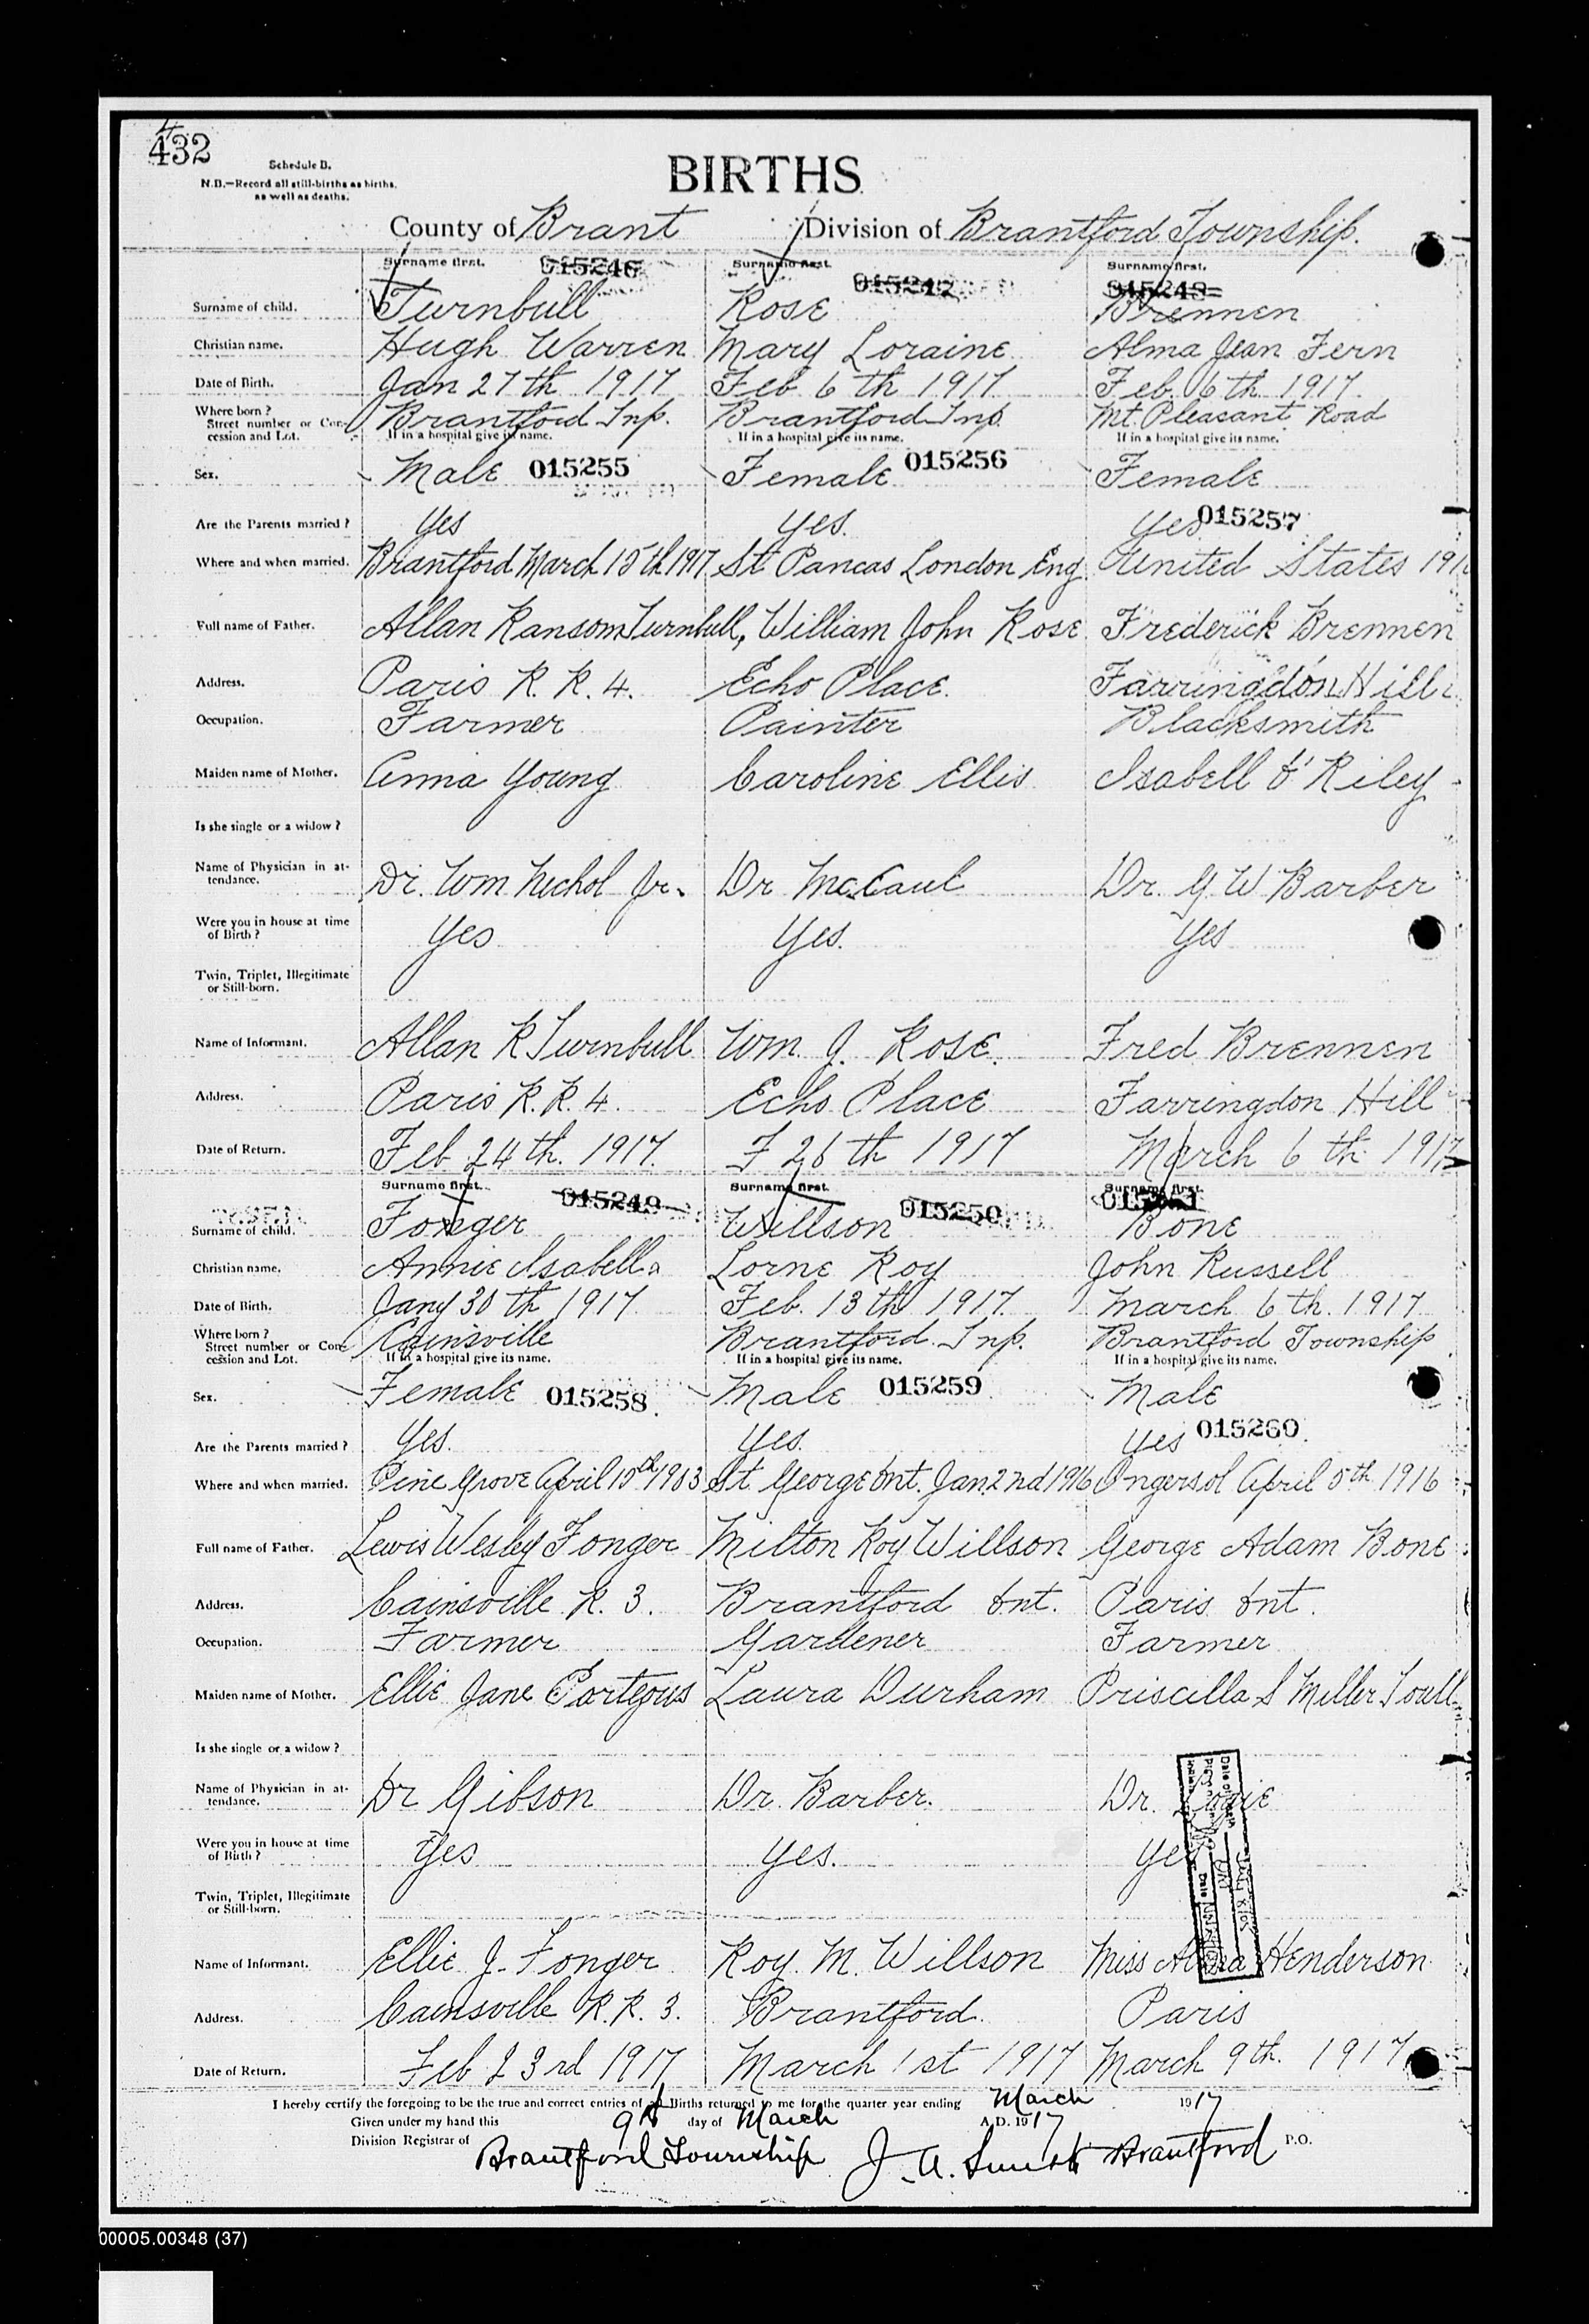 432
Schedule B.
N.B.—Record all still-births as births, as well as deaths.
BIRTHS
County of Brant Division of Brantford Township.
Surname first. 015246 Surname first. Surname first.
Surname of child. Turnbull Rose Brennen
Christian name. Hugh Warren Mary Loraine Alma Jean Fern
Date of Birth. Jan 27th 1917 Feb 6th 1917 Feb. 6th 1917
Where born? Street number or Concession and Lot. Brantford Tnp. Brantford Tnp. Mt. Pleasant Road
If in a hospital give its name. If in a hospital give its name. If in a hospital give its name.
Sex. Male 015255 Female 015256 Female
Are the Parents married? Yes Yes. Yes 015257
Where and when married. Brantford March 15th 1917 St Pancas London Eng. United States
Full name of Father. Allan Ransom Turnbull, William John Rose Frederick Brennen
Address. Paris R. R. 4. Echo Place. Farringdon Hill
Occupation. Farmer Painter Blacksmith
Maiden name of Mother. Anna Young Caroline Ellis Isabell O'Riley
Is she single or a widow?
Name of Physician in attendance. Dr. Wm Nichol Jr. Dr McCaul Dr. G. W Barber
Were you in house at time of Birth? Yes Yes. Yes
Twin, Triplet, Illegitimate or Still-born.
Name of Informant. Allan R Turnbull Wm. J. Rose. Fred Brennen
Address. Paris R. R. 4. Echo Place Farringdon Hill
Date of Return. Feb 24th. 1917. F 26th 1917 March 6th 1917
Surname first. 015249 Surname first. 015250 Surname first.
Surname of child. Fonger Willson Bone
Christian name. Annie Isabella Lorne Roy John Russell
Date of Birth. Jany 30th 1917 Feb. 13th 1917 March 6th. 1917
Where born? Street number or Concession and Lot. Cainsville Brantford Tnp. Brantford Township
If in a hospital give its name. If in a hospital give its name. If in a hospital give its name.
Sex. Female 015258 Male 015259 Male
Are the Parents married? Yes. Yes. Yes 015260
Where and when married. Pine Grove April 15th 1903 St. George Ont. Jan 2nd 1916 Ingersol April 5th 1916
Full name of Father. Lewis Wesley Fonger Milton Roy Willson George Adam Bone
Address. Cainsville R. 3. Brantford Ont. Paris Ont.
Occupation. Farmer Gardener Farmer
Maiden name of Mother. Ellie Jane Porteous Laura Durham Priscilla S Miller
Is she single or a widow?
Name of Physician in attendance. Dr Gibson Dr. Barber. Dr. Logie
Were you in house at time of Birth? Yes Yes. Yes
Twin, Triplet, Illegitimate or Still-born.
Name of Informant. Ellie J. Fonger Roy. M. Willson Miss Henderson
Address. Cainsville R. R. 3. Brantford. Paris
Date of Return. Feb 23rd 1917 March 1st 1917 March 9th. 1917
I hereby certify the foregoing to be the true and correct entries of all Births returned to me for the quarter year ending March 1917
Given under my hand this 9th day of March A.D. 1917
Division Registrar of Brantford Township J. A. Smith Brantford P.O.
00005.00348 (37)